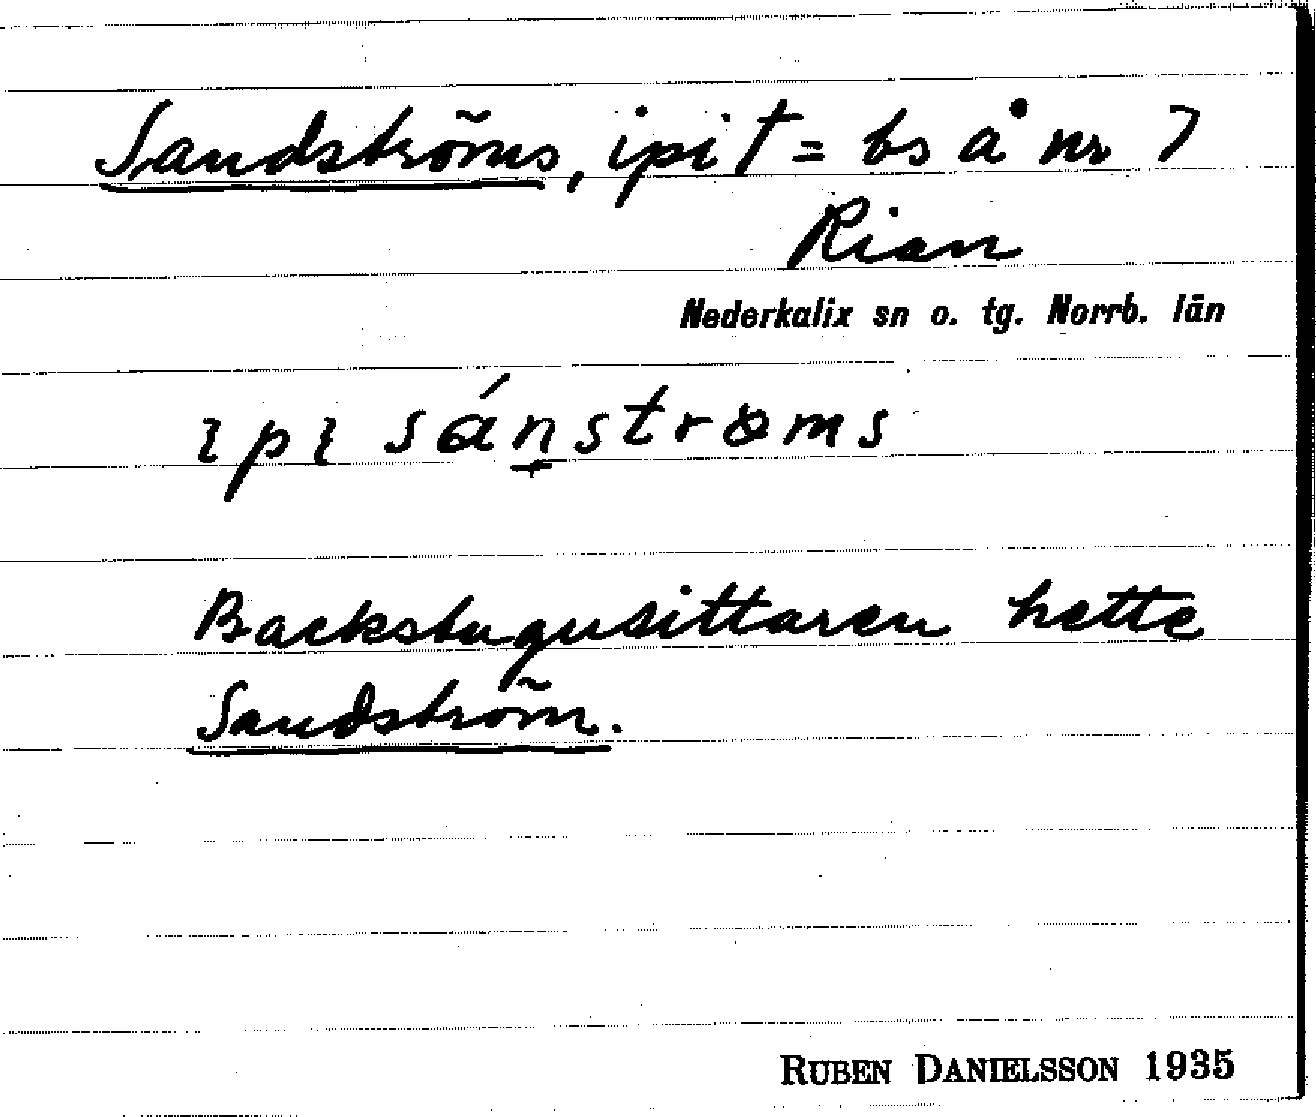 Sandströms, ipi † = bs å nr 7
Rian
Nederkalix sn o. tg. Norrb. län
ıpı sánstrøms
Backstugusittaren hette
Sandström.
RUBEN DANIELSSON 1935